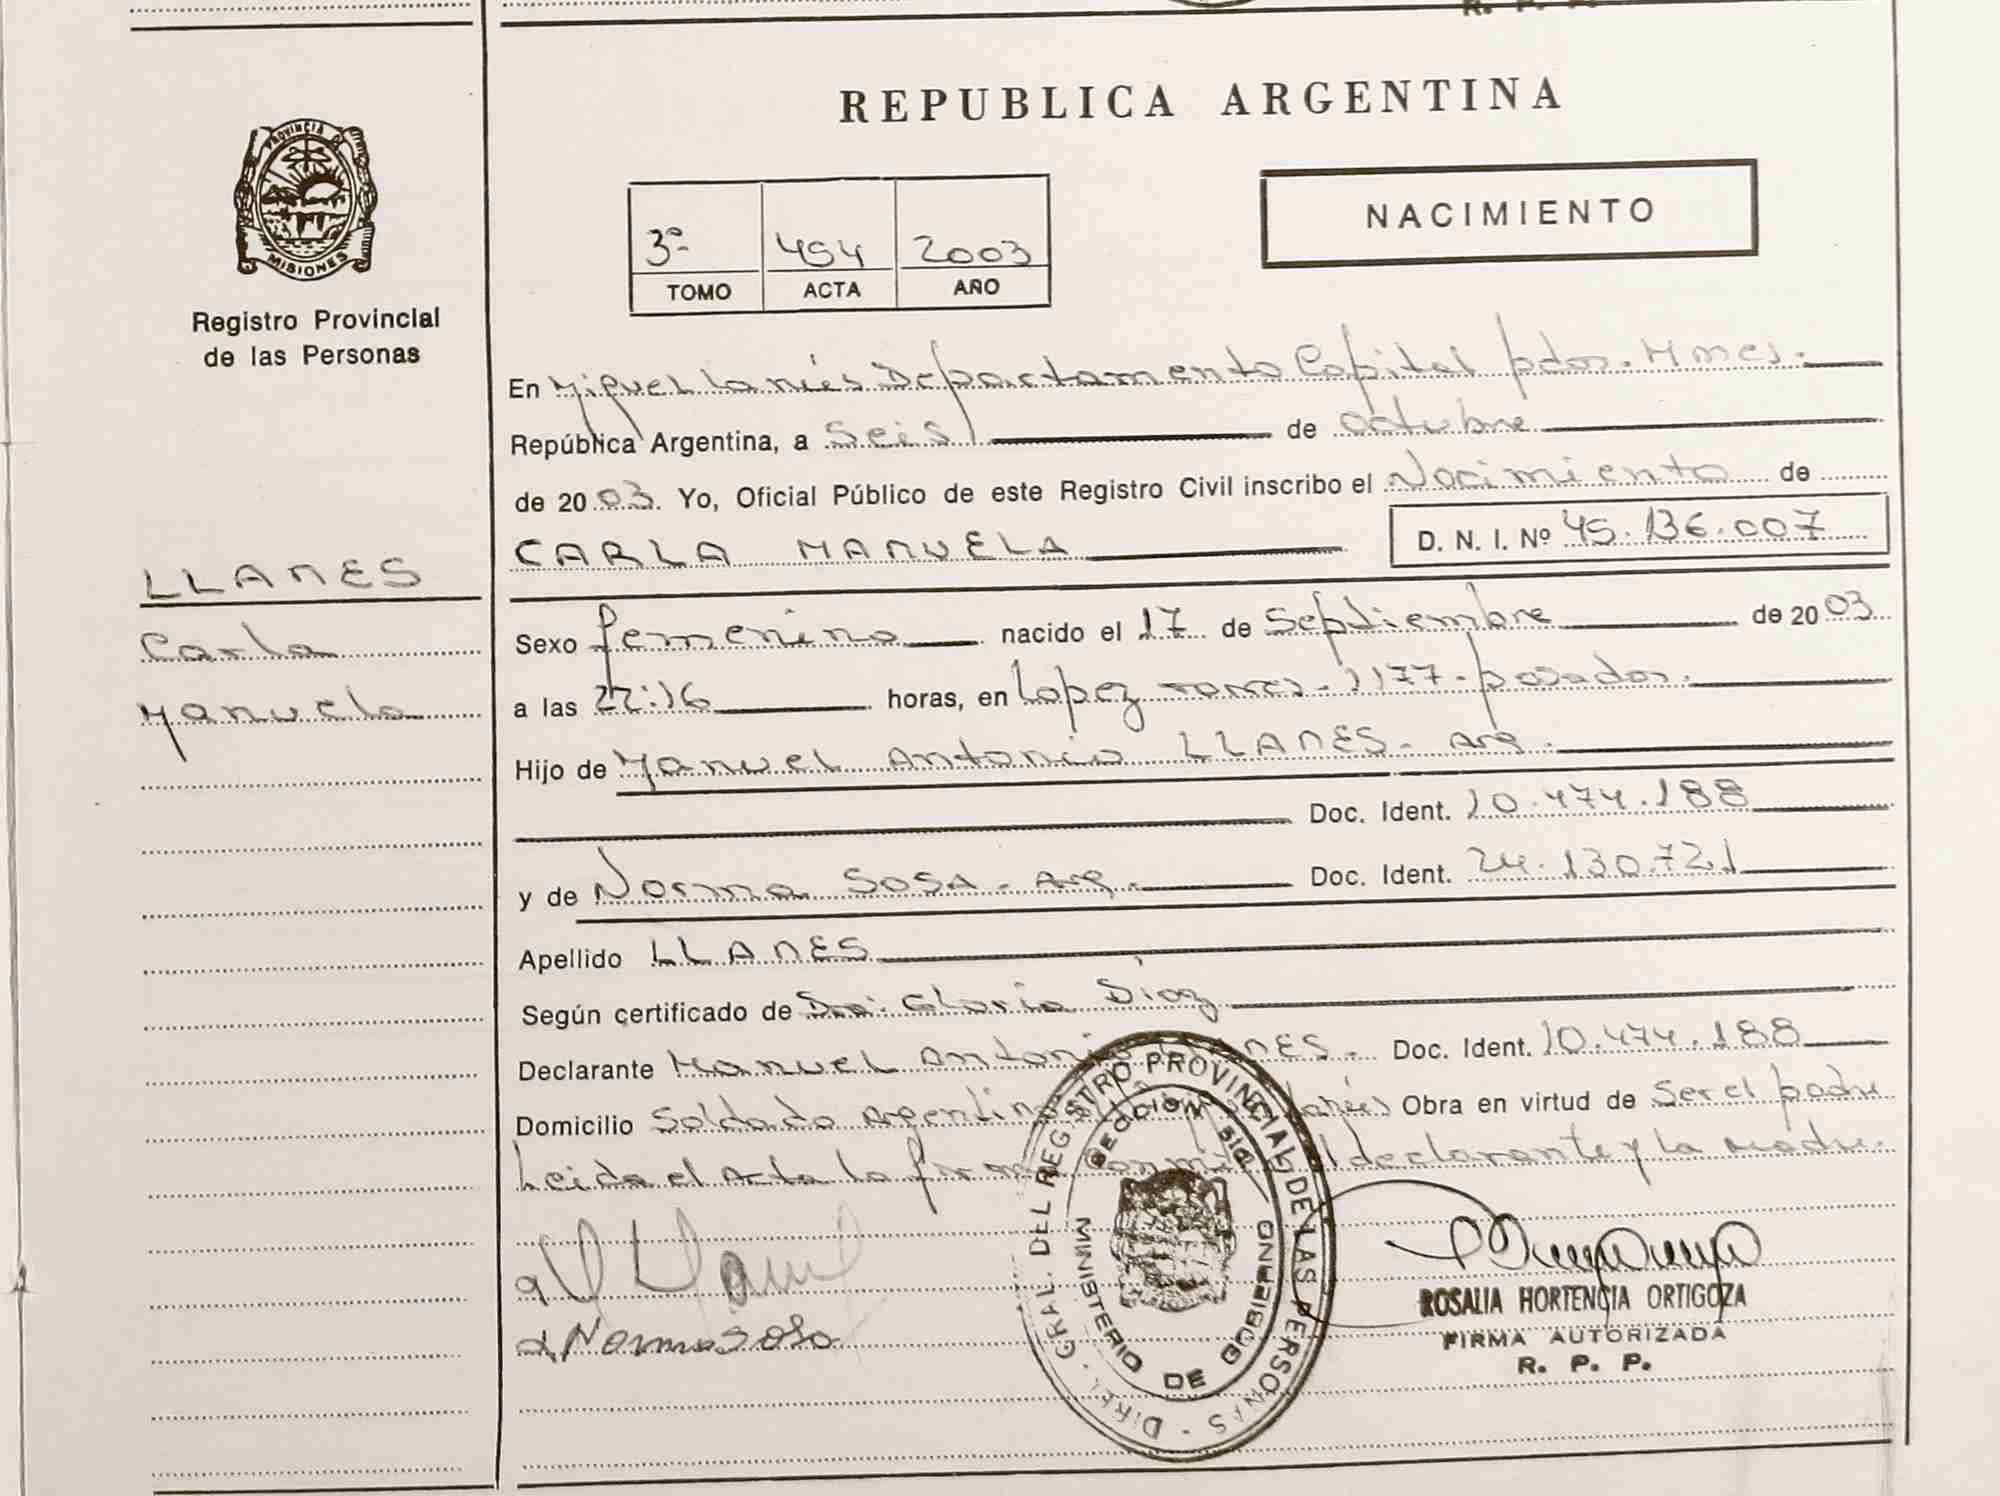 R. P. P.
PROVINCIA DE
MISIONES
Registro Provincial
de las Personas
LLANES
Carla
Manuela
REPUBLICA ARGENTINA
3º 454 2003
TOMO ACTA AÑO
NACIMIENTO
En Miguel Lanús Departamento Capital pdas. Mnes.
República Argentina, a Seis de octubre
de 2003. Yo, Oficial Público de este Registro Civil inscribo el Nacimiento de
CARLA MANUELA D. N. I. Nº 45.136.007
Sexo femenino nacido el 17 de Septiembre de 2003
a las 22:16 horas, en Lopez torres. 1177. posadas.
Hijo de Manuel Antonio LLANES. Arg.
Doc. Ident. 10.474.188
y de Norma SOSA. Arg. Doc. Ident. 24.130.721
Apellido LLANES
Según certificado de Dra: Gloria Diaz
Declarante Manuel Antonio LLANES. Doc. Ident. 10.474.188
Domicilio Soldado Argentino Lanús Obra en virtud de Ser el padre
Leida el Acta la firma conmigo el declarante y la madre.
Norma Sosa
DIREC. GRAL. DEL REGISTRO PROVINCIAL DE LAS PERSONAS
MINISTERIO DE GOBIERNO
ROSALIA HORTENCIA ORTIGOZA
FIRMA AUTORIZADA
R. P. P.